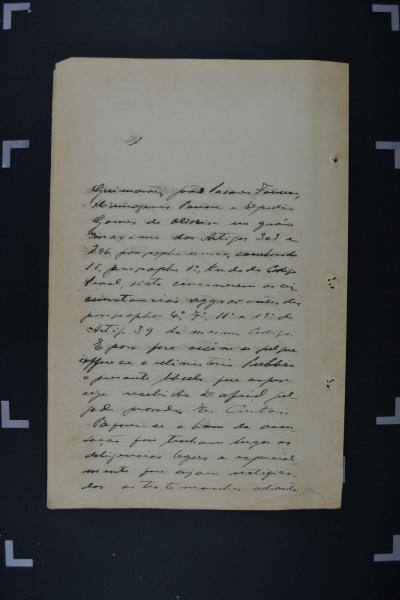 Guimarães, João Soares Torres,
Hermogenes e
Gomes de Oliveira no gráo
maximo dos Artigos 303 e
296, paragrapho unico, combinado
18, paragrapho 1º, tudo do Codigo
Penal, visto concorrerem as cir
cumstancias aggravantes dos
paragraphos 4º, 7º, 11º e 13º do
Artigo 39 do mesmo Codigo.
E para que assim se julgue
offerece o Ministerio Publico
o presente libello que espera
seja recebido e afinal jul
gado provado
Requer-se a bem da accu
sação que tenham lugar as
diligencias legaes e especial
mente que sejam notifica
das as testemunhas adiante